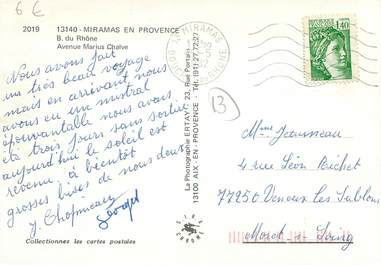 6 €
2019
13140 - MIRAMAS EN PROVENCE
B. du Rhône
Avenue Marius Chalve
Nous avons fait
un très beau voyage
mais en arrivant nous
avons eu un mistral
épouvantable nous avons
été trois jours sans sortir
aujourd'hui le soleil est
revenu. à bientôt
grosses bises de nous deux
Y. Chopineau
Georget
Collectionnez les cartes postales
La Photographie ERTAY - 23, Rue Portalis
13100 AIX - EN - PROVENCE - Tél. (91) 27.72.27
MIRAMAS
RHONE
1,40
13
Mme Jeanneau
4 rue Léon Brichet
77250 Veneux les Sablons
Moret s. Loing